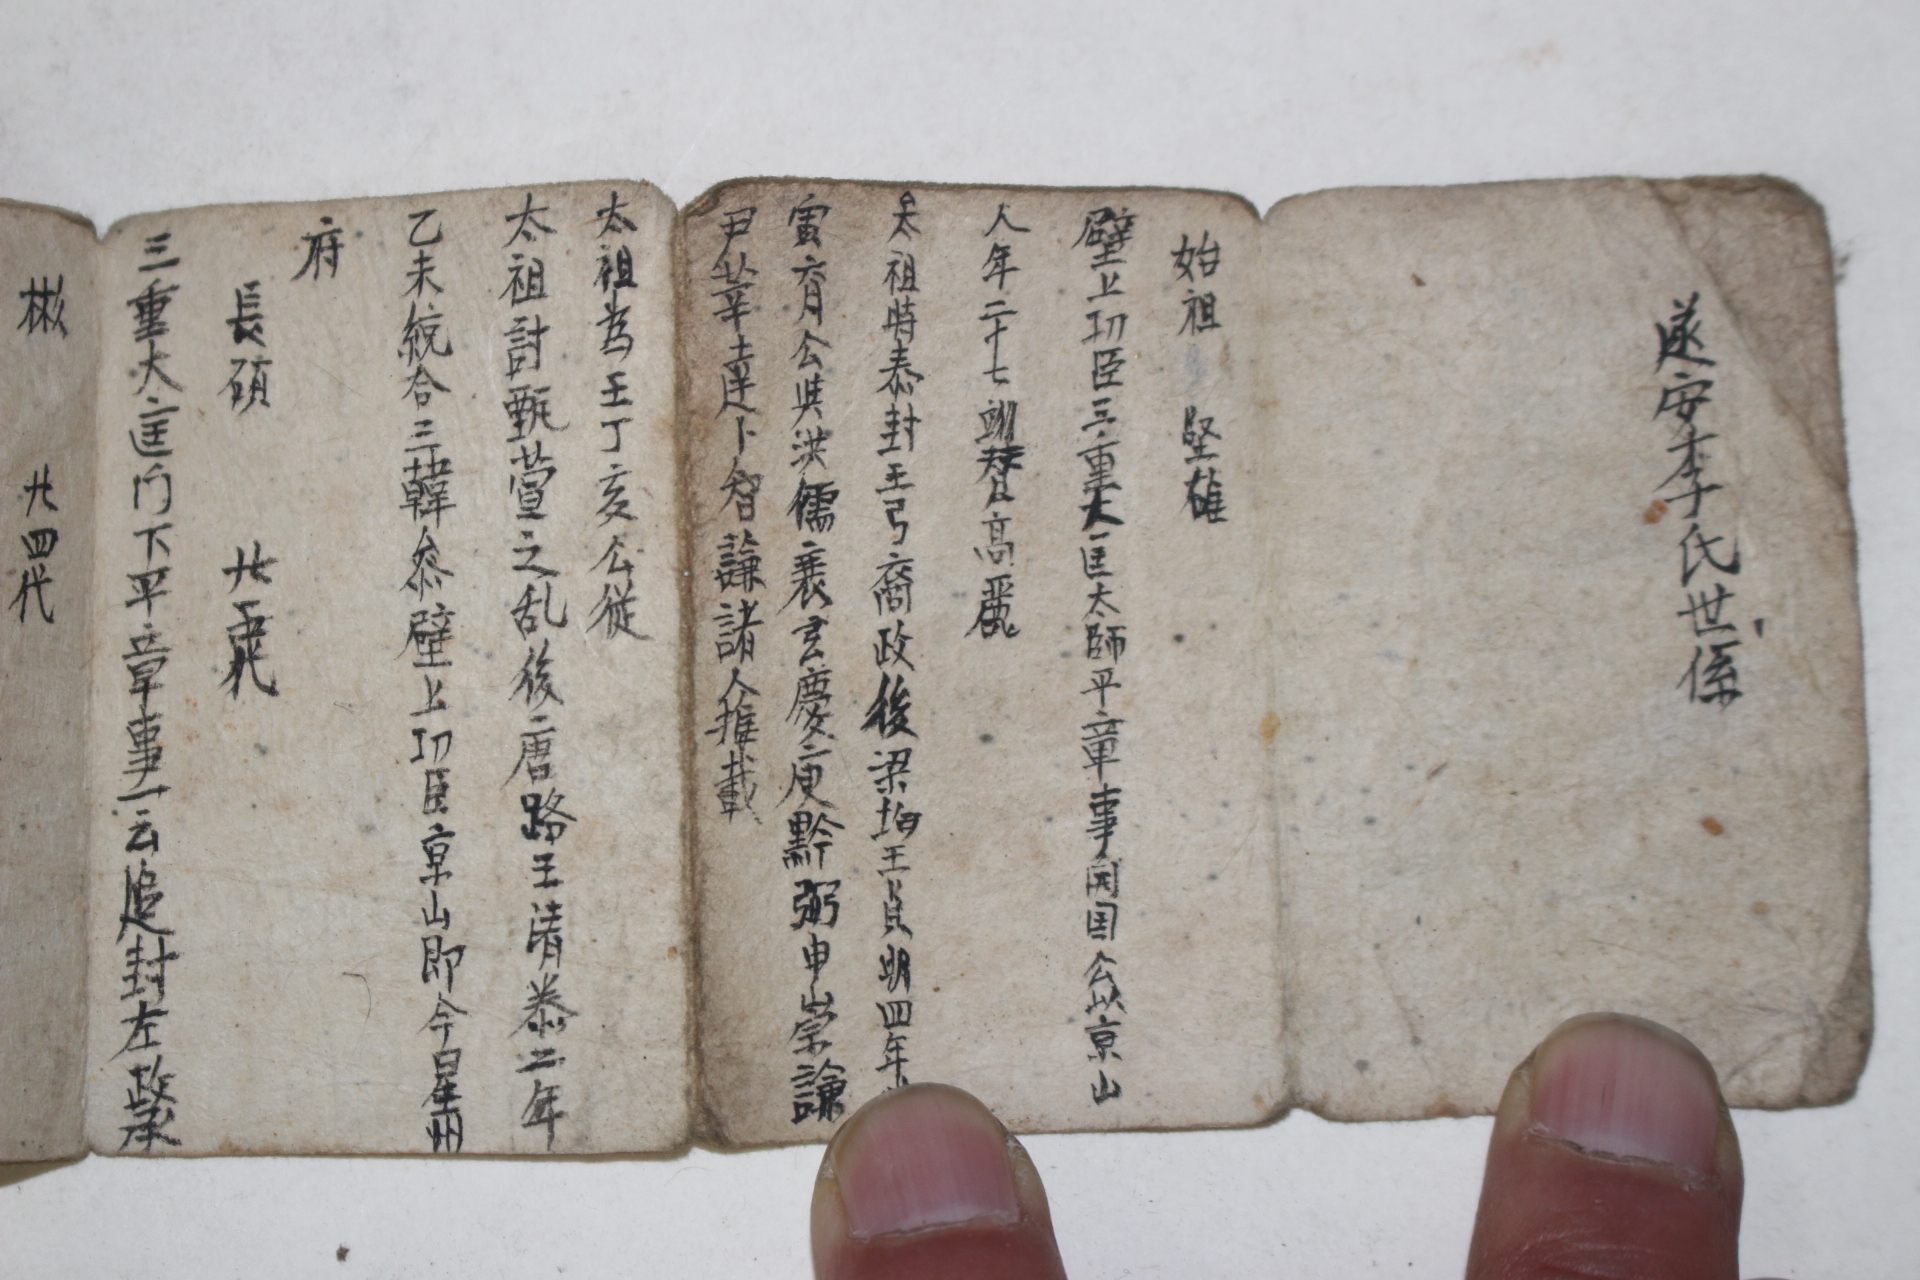 遂安李氏世係
始祖 堅雄
壁上功臣三重大匡太師平章事開国公以京山
人年二十七翊賛高麗
太祖時泰封王弓裔政後梁均王貞明四年
寅育公與洪儒裵玄慶庾黔弼申崇謙
尹莘達卜智謙諸人推戴
太祖為王丁亥公従
太祖討甄萱之乱後唐路王清泰二年
乙未統合三韓叅壁上功臣京山即今星州
府
長碩 廿五代
三重大匡门下平章事一云追封左政承
彬 廿四代